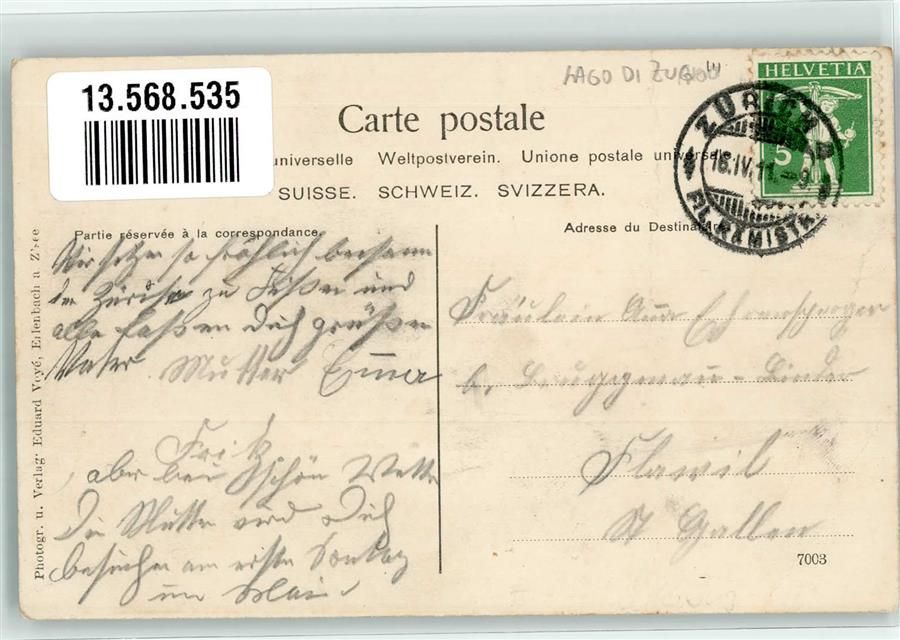 LAGO DI ZUGO
13.568.535
HELVETIA
5
ZÜRICH
16.IV.11.-9
FIL.RÄMISTR.
Carte postale
universelle Weltpostverein. Unione postale universale
SUISSE. SCHWEIZ. SVIZZERA.
Partie réservée à la correspondance
Adresse du Destinataire
Wir sitzen so fröhlich beisamm
zu Füßen und
alle lassen Dich grüßen
Vater Mutter Emma
Fritz
aber bei schön Wetter
Die Mutter wird Dich
besuchen am erste Sontag
im Mai.
Fräulein Anna
b. Bruggmann-Binder
Flawil
St Gallen
7003
Photogr. u. Verlag: Eduard Voyé, Erlenbach a Z'see